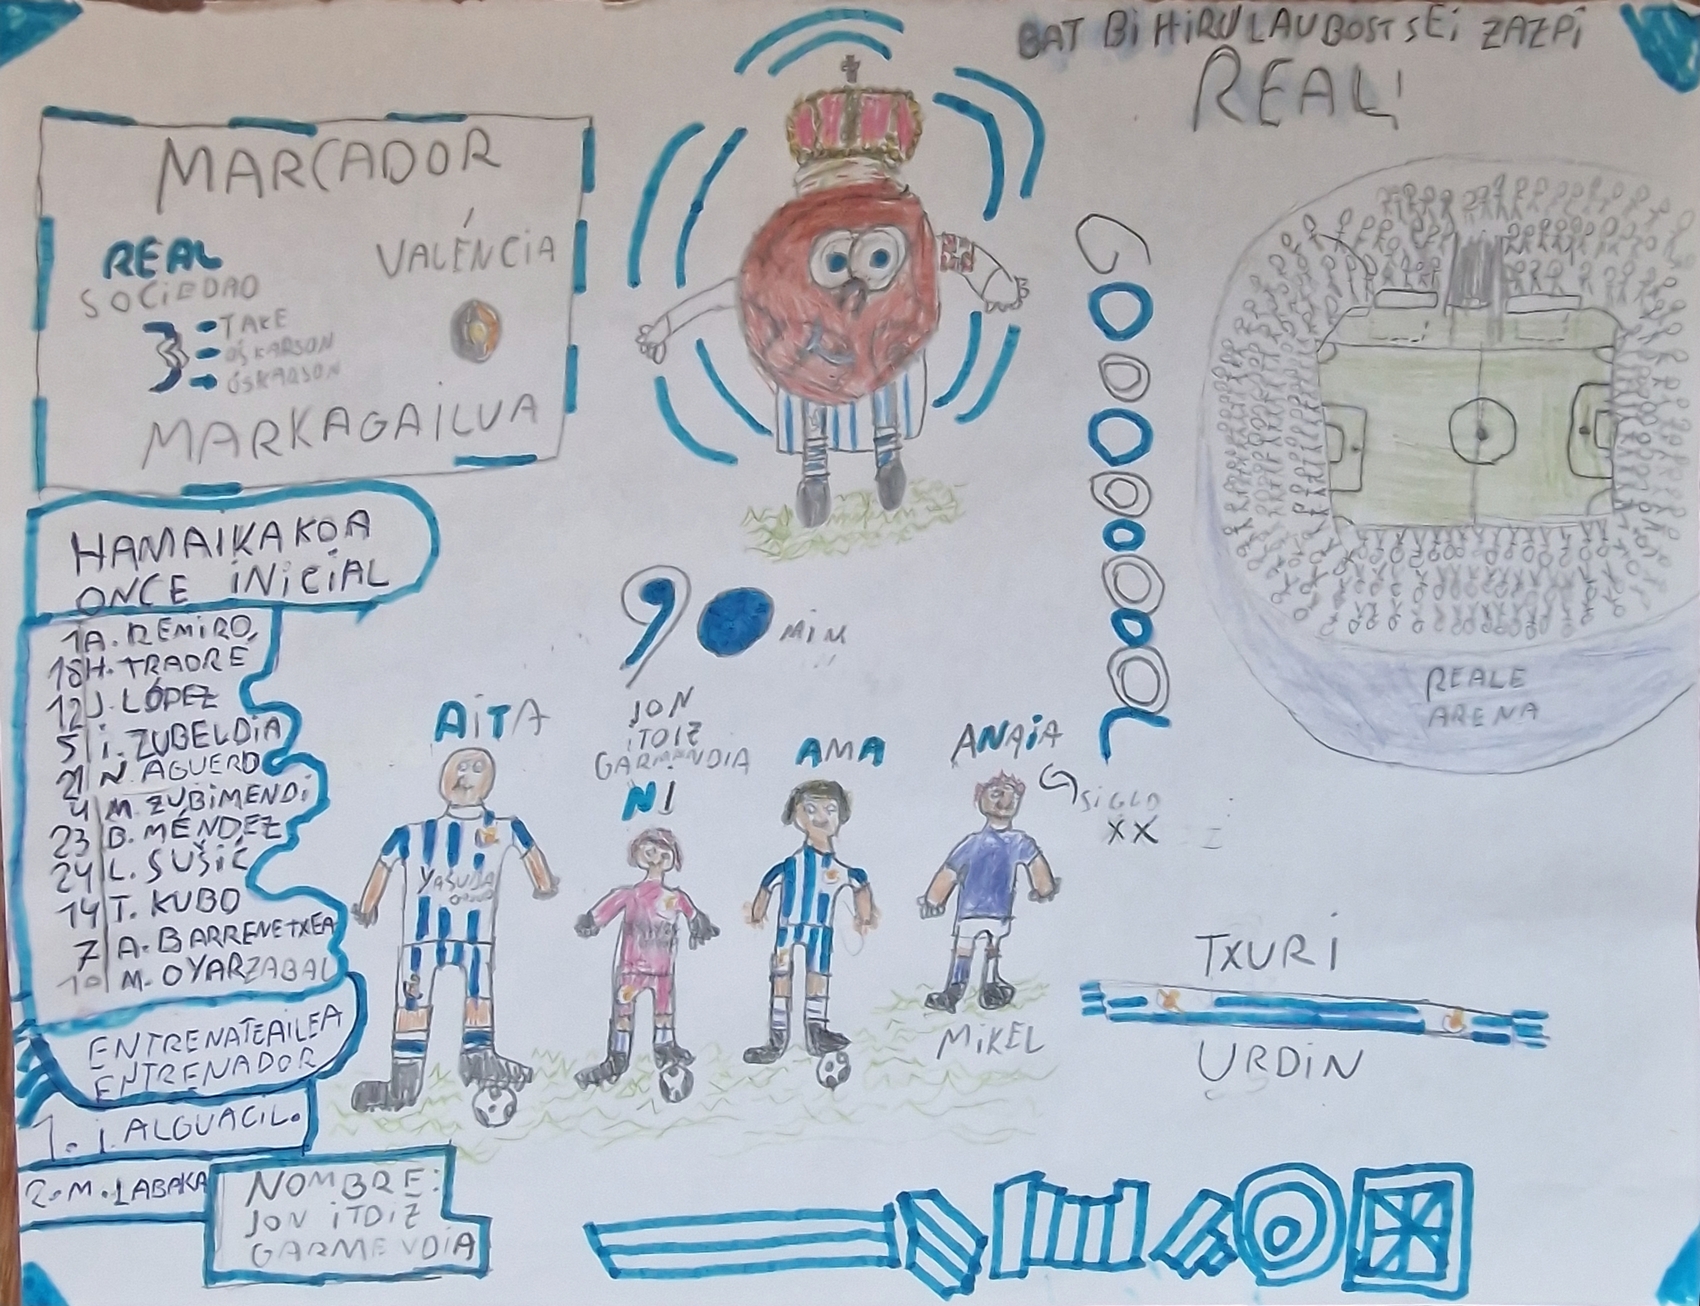 BAT BI HIRU LAU BOST SEI ZAZPI
REAL!
MARCADOR
REAL
SOCIEDAD
VALÉNCIA
3
TAKE
ÓSKARSON
ÓSKARSON
MARKAGAILUA
HAMAIKAKOA
ONCE INICIAL
1 A. REMIRO
18 H. TRAORÉ
12 J. LÓPEZ
5 I. ZUBELDIA
21 N. AGUERD
4 M. ZUBIMENDI
23 B. MÉNDEZ
24 L. SUŠIĆ
14 T. KUBO
7 A. BARRENETXEA
10 M. OYARZABAL
ENTRENATEAILEA
ENTRENADOR
1. I. ALGUACIL.
2. M. LABAKA
NOMBRE:
JON ITOIZ
GARMENDIA
90 MIN
GOOOOOOOOL
REALE
ARENA
AITA
YASUDA
JON
ITOIZ
GARMENDIA
NI
AMA
ANAIA
SIGLO
XX
MIKEL
TXURI
URDIN